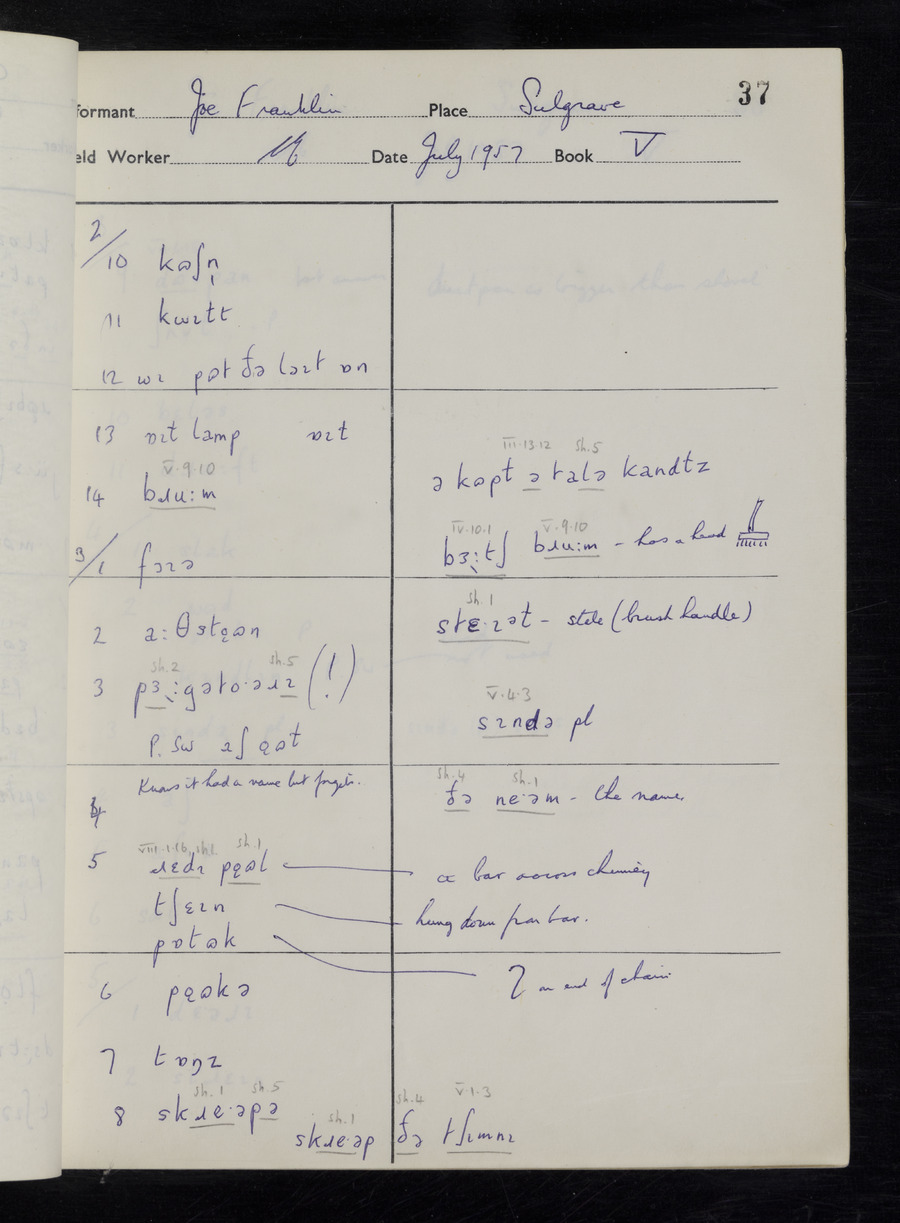 37
formant Joe Franklin Place Sulgrave
eld Worker Date July 1957 Book V
2/10 kɷʃn̩
11 kwɪlt
12 wɪ pɷt ðə ləɪt ɒn
13 ɒɪl lamp ɒɪl
V.9.10
14 bɹuːm
III.13.12 sh.5
ə kɷpt ə talə kandlz
IV.10.1 V.9.10
bɜːtʃ bɹuːm - has a head
3/1 fɔɪə
2 aːθstɷən
sh.1
stɛ·ɪəl - stele (brush handle)
sh.2 sh.5
3 pɜːgəto·əɹɪ (!)
P. sw aʃ
V.4.3
sɪndə pl
Knows it had a name but forgets.
4
sh.4 sh.1
ðə ne·əm - the name
VIII.1.16, sh.1 sh.1
5 ɹɛdɪ
a bar across chimney
tʃɛɪn hung down from bar.
pɒtɷk
on end of chain
6 pɷkə
7 tɒŋz
sh.1 sh.5
8 skɹe·əpə
sh.1 sh.4 V.1.3
skɹe·əp ðə tʃɪmnɪ